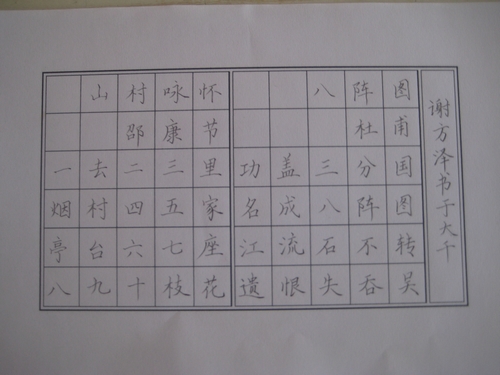 山村咏怀
邵康节
一去二三里
烟村四五家
亭台六七座
八九十枝花
八阵图
杜甫
功盖三分国
名成八阵图
江流石不转
遗恨失吞吴
谢方泽书于大千